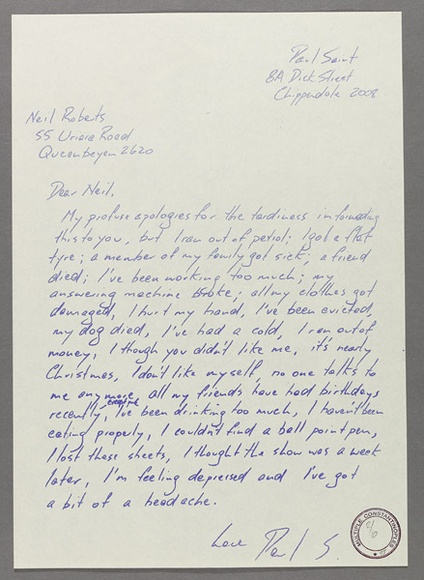 Paul Saint
8A Dick Street
Chippendale 2008
Neil Roberts
55 Uriara Road
Queenbeyen 2620
Dear Neil,
My profuse apologies for the tardiness in forwarding
this to you, but I ran out of petrol; I got a flat
tyre; a member of my family got sick; a friend
died; I've been working too much; my
answering machine broke; all my clothes got
damaged, I hurt my hand, I've been evicted,
my dog died, I've had a cold, I ran out of
money, I though you didn't like me, it's nearly
Christmas, I don't like myself, no one talks to
me anymore, all my friends have had birthdays
recently, except me I've been drinking too much, I haven't been
eating properly, I couldn't find a ball point pen,
I lost these sheets, I thought the show was a week
later, I'm feeling depressed and I've got
a bit of a headache.
Love Paul S.
MULTIPLE CONSTANTINOPLES